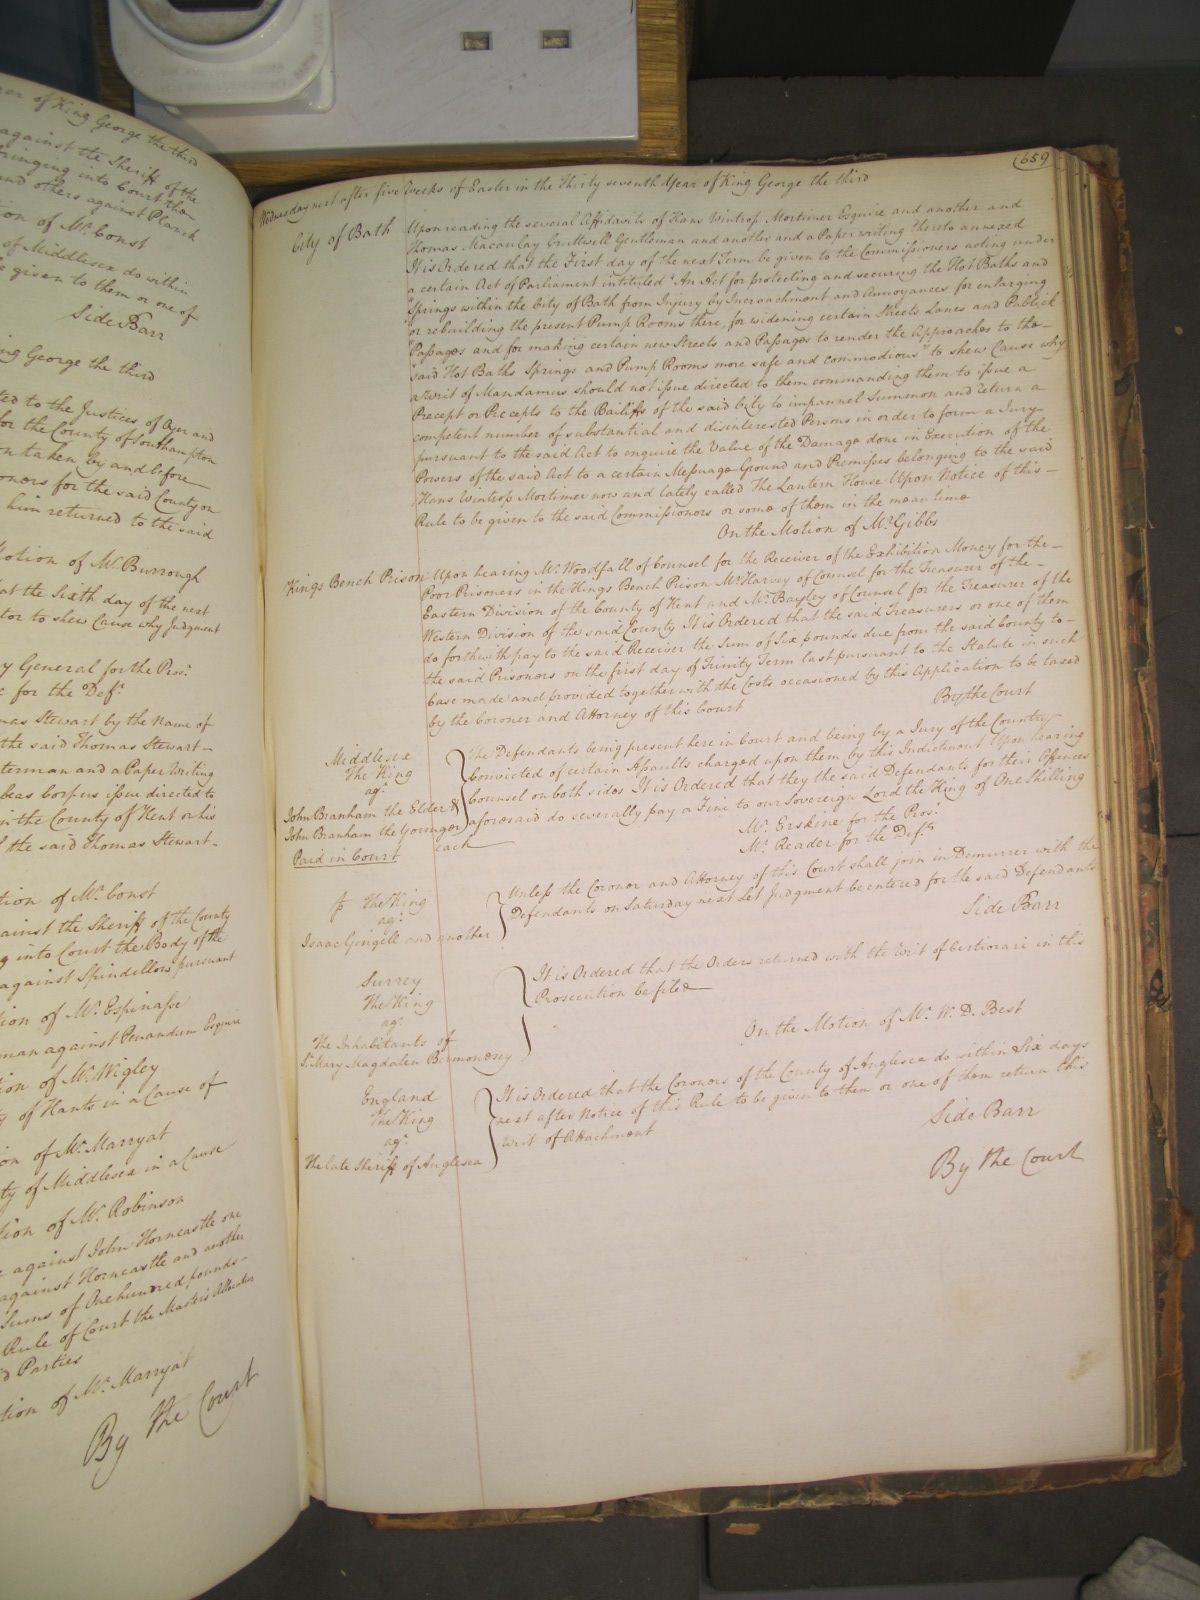 er of King George the third
against the Sheriff of the
bringing into Court than
and others against Planck
ion of Mr. Const
of Middlesex do within
e given to them or one of
Side Barr
ing George the third
ted to the Justices of Oyer and
for the County of Southampton
on taken by and before
oners for the said County on
him returned to the said
Motion of Mr. Burrough
at the Sixth day of the next
tor to shew Cause why Judgment
y General for the Pros.
e for the Def.
mas Stewart by the Name of
the said Thomas Stewart
terman and a Paper Writing
beas Corpus issue directed to
in the County of Kent or his
the said Thomas Stewart
tion of Mr. Const
ainst the Sheriff of the County
g into Court the Body of the
against Spindellow pursuant
ion of Mr. Espinasse
man against Penandum Esquire
ion of Mr. Wigley
y of Hants in a Cause of
on of Mr. Marryat
ty of Middlesex in a Cause
tion of Mr. Robinson
e against John Horncastle one
against Horncastle and another
Sums of One hundred pounds
Rule of Court the Master's Allocatur
d Parties
tion of Mr. Marryat
By the Court
659
Wednesday next after five Weeks of Easter in the Thirty seventh Year of King George the third
City of Bath
Upon reading the several Affidavits of Hans Wintrop Mortimer Esquire and another and
Thomas Macaulay Cruttwell Gentleman and another and a Paper writing thereto annexed
It is Ordered that the First day of the next Term be given to the Commissioners acting under
a certain Act of Parliament intituled "An Act for protecting and securing the Hot Baths and
"Springs within the City of Bath from Injury by Incroachment and Annoyances for enlarging
or rebuilding the present Pump Rooms there, for widening certain Streets Lanes and Publick
"Passages and for making certain new Streets and Passages to render the Approaches to the
"said Hot Baths Springs and Pump Rooms more safe and commodious" to shew Cause why
a Writ of Mandamus should not issue directed to them commanding them to issue a
Precept or Precepts to the Bailiffs of the said City to impannel Summon and return a
competent number of substantial and disinterested Persons in order to form a Jury
pursuant to the said Act to enquire the Value of the Damage done in Execution of the
Powers of the said Act to a certain Messuage Ground and Premises belonging to the said
Hans Wintrop Mortimer now and lately called The Lantern House Upon Notice of this
Rule to be given to the said Commissioners or some of them in the mean time
On the Motion of Mr. Gibbs
Kings Bench Prison
Upon hearing Mr. Woodfall of Counsel for the Receiver of the Exhibition Money for the
Poor Prisoners in the Kings Bench Prison Mr. Harvey of Counsel for the Treasurer of the
Eastern Division of the County of Kent and Mr. Bayley of Counsel for the Treasurer of the
Western Division of the said County It is Ordered that the said Treasurers or one of them
do forthwith pay to the said Receiver the Sum of Six pounds due from the said County to
the said Prisoners on the first day of Trinity Term last pursuant to the Statute in such
Case made and provided together with the Costs occasioned by this Application to be taxed
by the Coroner and Attorney of this Court
By the Court
Middlesex
The King
agt.
John Branham the Elder &
John Branham the Younger
Paid in Court
The Defendants being present here in Court and being by a Jury of the Country
Convicted of certain Assaults charged upon them by this Indictment Upon hearing
Counsel on both sides It is Ordered that they the said Defendants for their Offences
aforesaid do severally pay a Fine to our Sovereign Lord the King of One Shilling
each
Mr. Erskine for the Pros.
Mr. Reader for the Defts.
The King
agt.
Isaac Gingell and another
Unless the Coroner and Attorney of this Court shall join in Demurrer with the
Defendants on Saturday next Let Judgment be entered for the said Defendants
Side Barr
Surrey
The King
agt.
The Inhabitants of
St. Mary Magdalen Bermondsey
It is Ordered that the Orders returned with the Writ of Certiorari in this
Prosecution be filed
On the Motion of Mr. W. D. Best
England
The King
agt.
The late Sheriff of Anglesea
It is Ordered that the Coroners of the County of Anglesea do within Six days
next after Notice of this Rule to be given to them or one of them return this
Writ of Attachment
Side Barr
By the Court